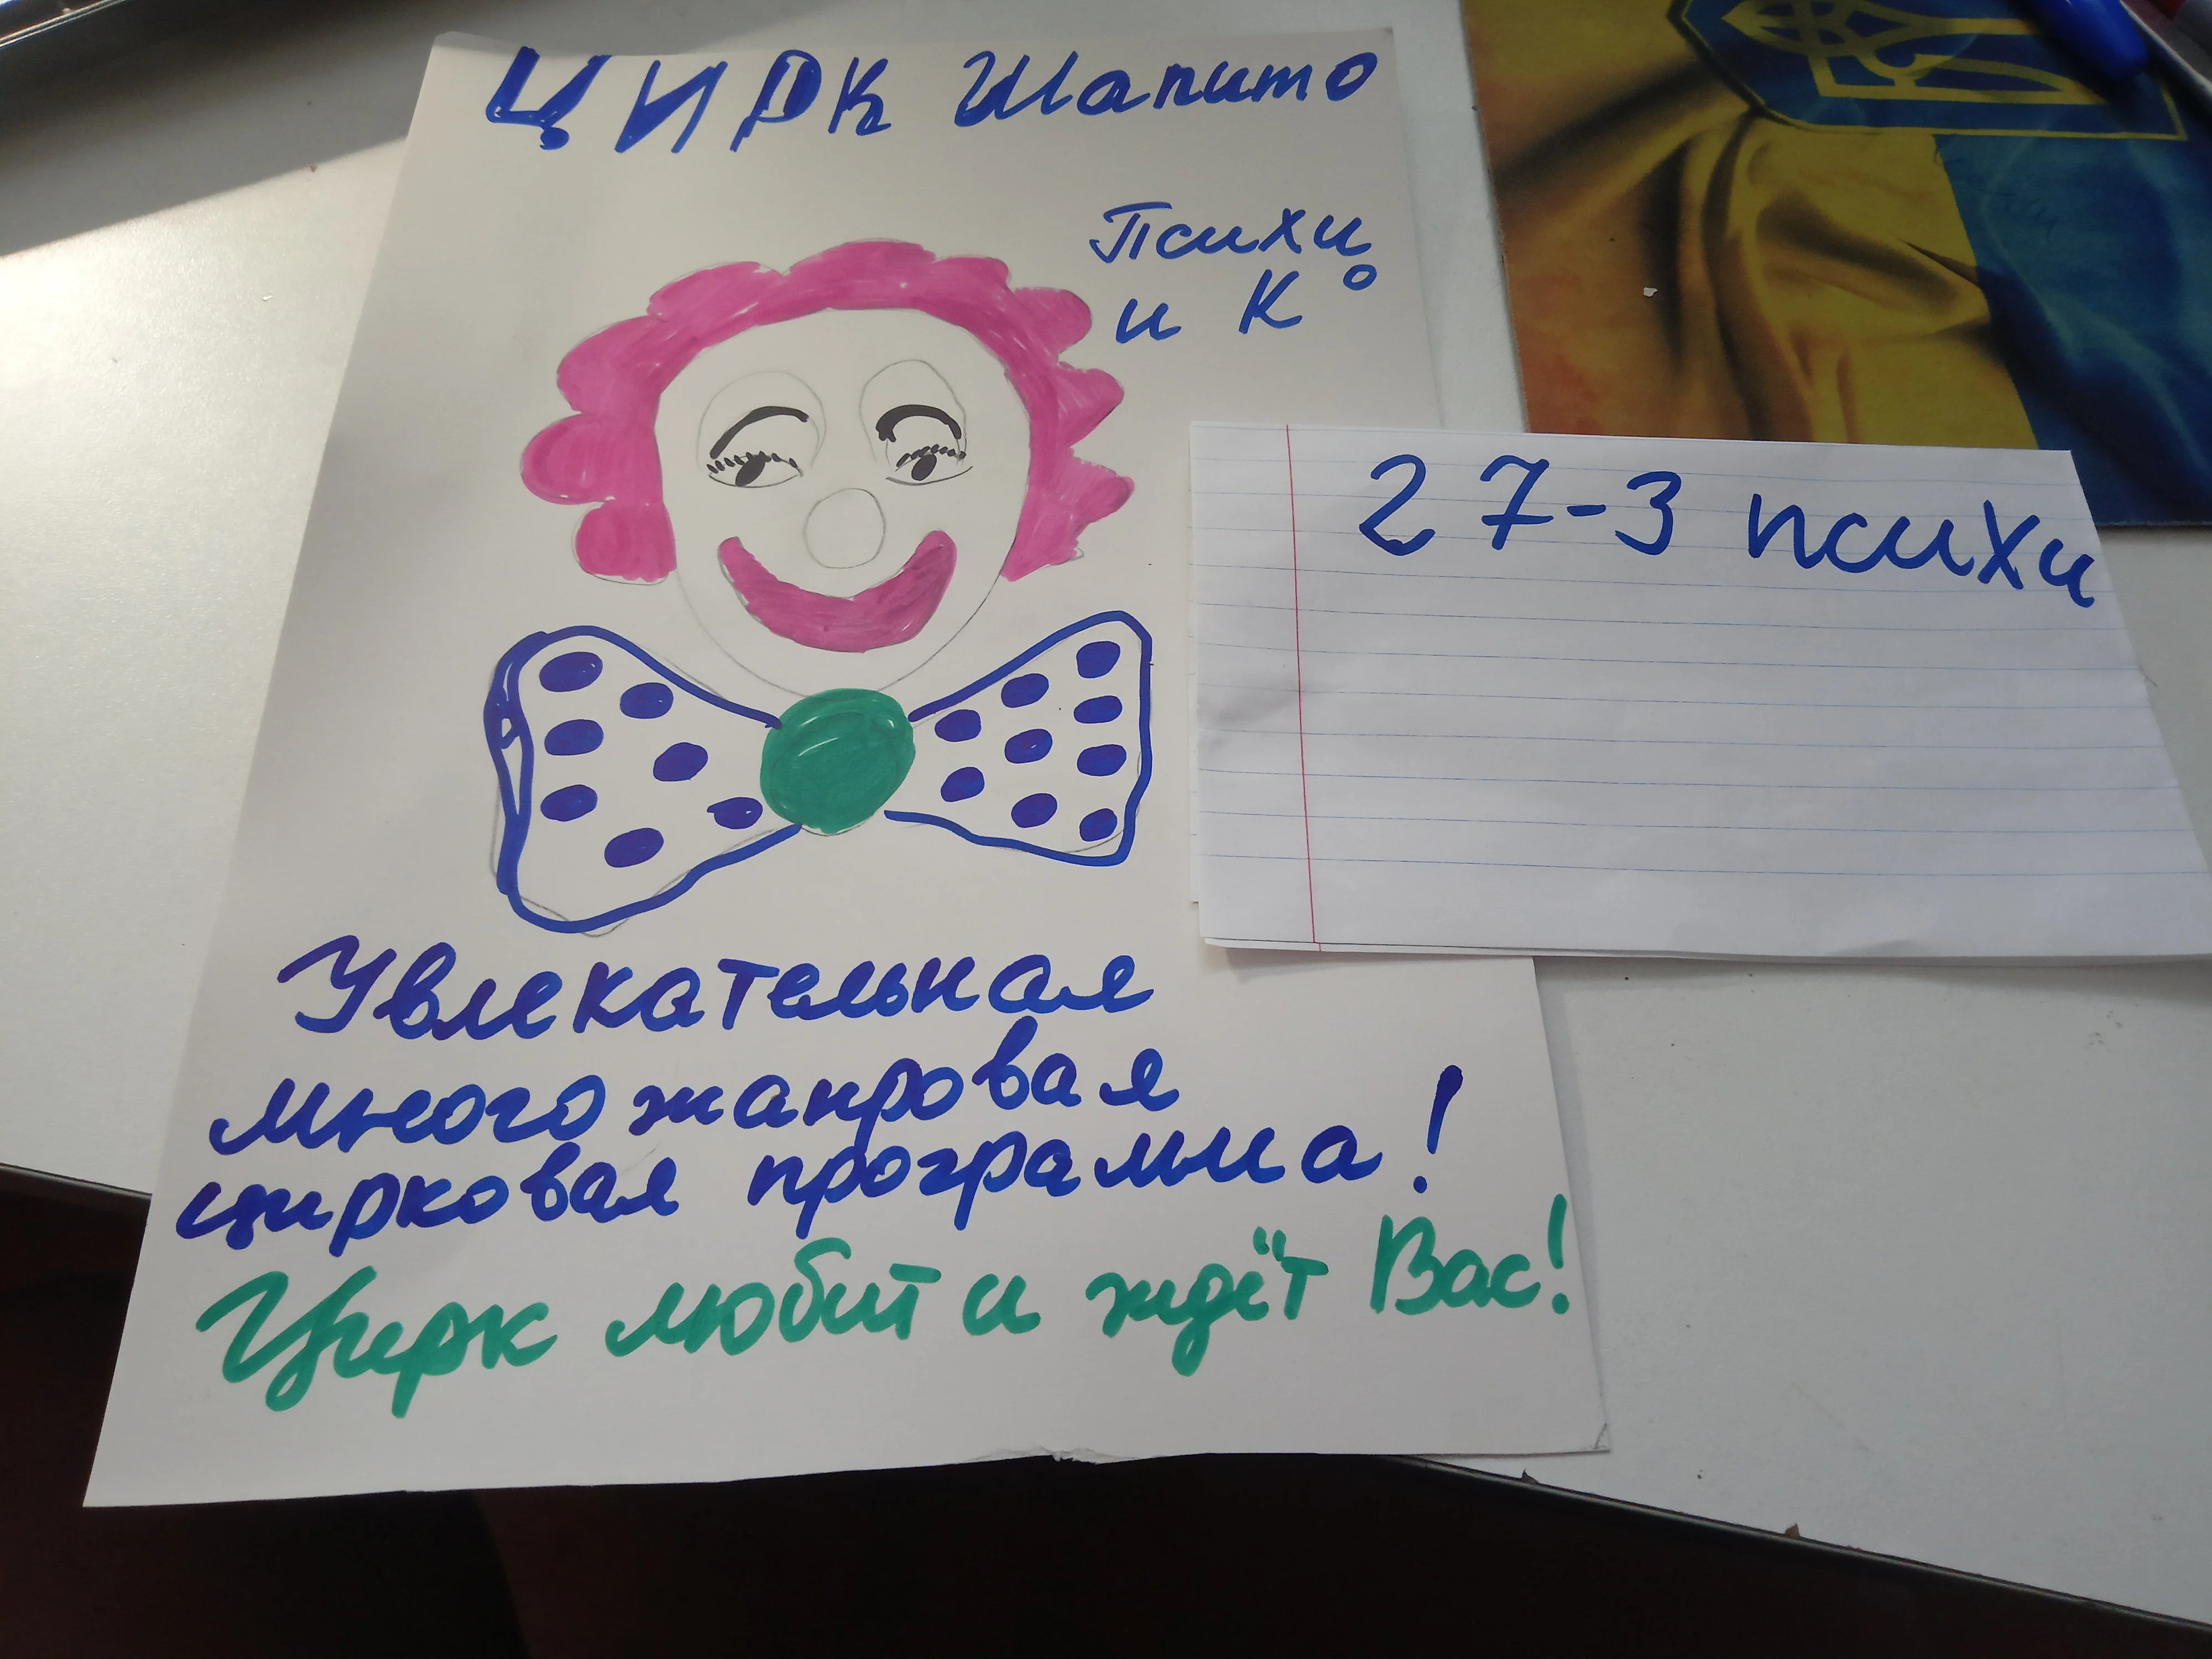 ЦИРК Шапито
Психи
и К°
27-3 психи
Увлекательная
многожанровая
цирковая программа!
Цирк любит и ждёт Вас!